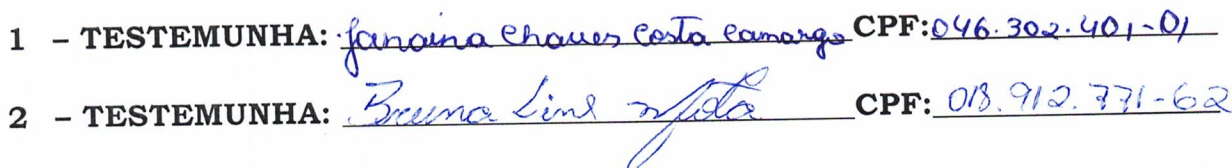 1 - TESTEMUNHA: Janaina Chaves Costa Camargo CPF: 046.302.401-01
2 - TESTEMUNHA: Bruna Lins Mota CPF: 018.912.771-62